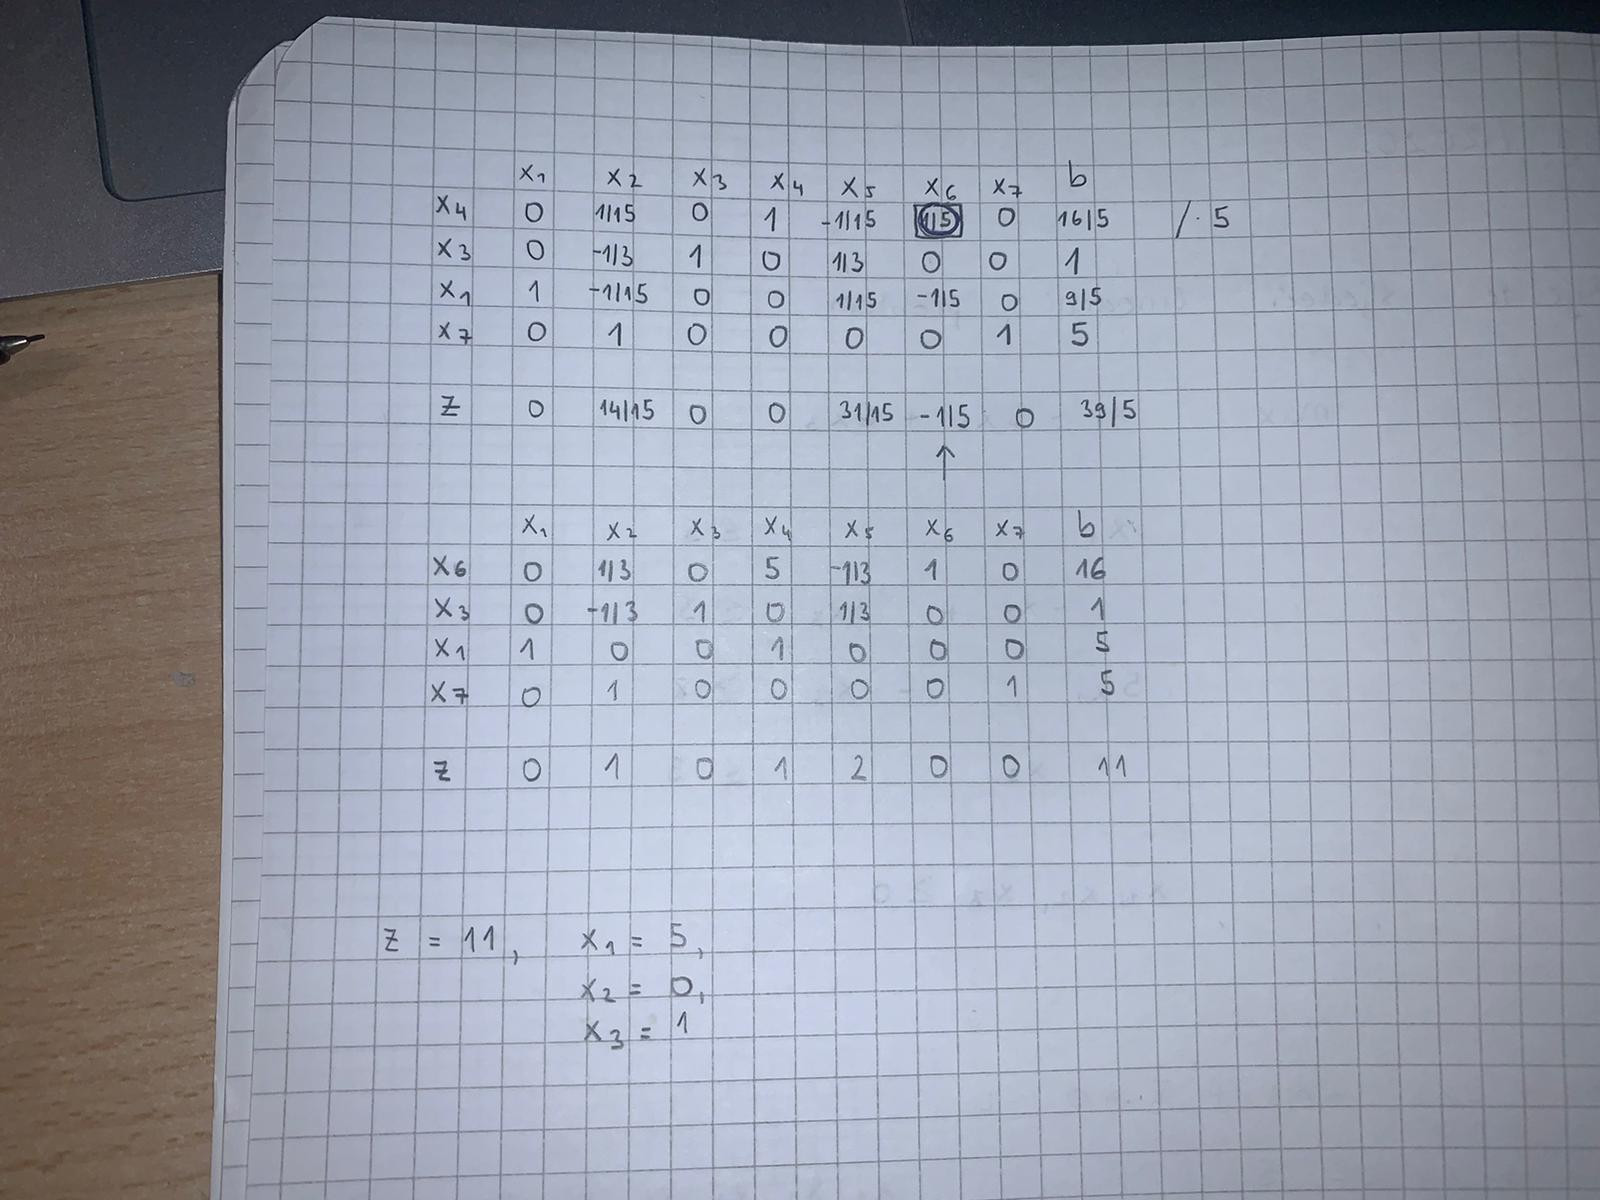 x1 x2 x3 x4 x5 x6 x7 b
x4 0 1/15 0 1 -1/15 1/5 0 16/5 /· 5
x3 0 -1/3 1 0 1/3 0 0 1
x1 1 -1/15 0 0 1/15 -1/5 0 9/5
x7 0 1 0 0 0 0 1 5
z 0 14/15 0 0 31/15 -1/5 0 39/5
↑
x1 x2 x3 x4 x5 x6 x7 b
x6 0 1/3 0 5 -1/3 1 0 16
x3 0 -1/3 1 0 1/3 0 0 1
x1 1 0 0 1 0 0 0 5
x7 0 1 0 0 0 0 1 5
z 0 1 0 1 2 0 0 11
z = 11, x1 = 5,
x2 = 0,
x3 = 1